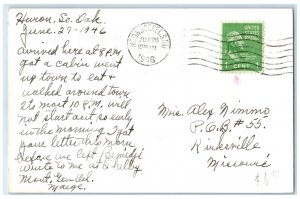 Huron, So. Dak.
June 27-1946
Arrived here at 8 P.M.
got a cabin went
up town to eat &
walked around town
its most 10 P.M. will
not start out so early
in the morning. I got
your letter this morn
before we left Bemidji
Write to me at Shelby
Mont. Gen Del.
Marge.
1946
UNITED STATES
CENT
Mrs. Alex Nimmo
P.O.B. #55.
Kirksville
Missouri